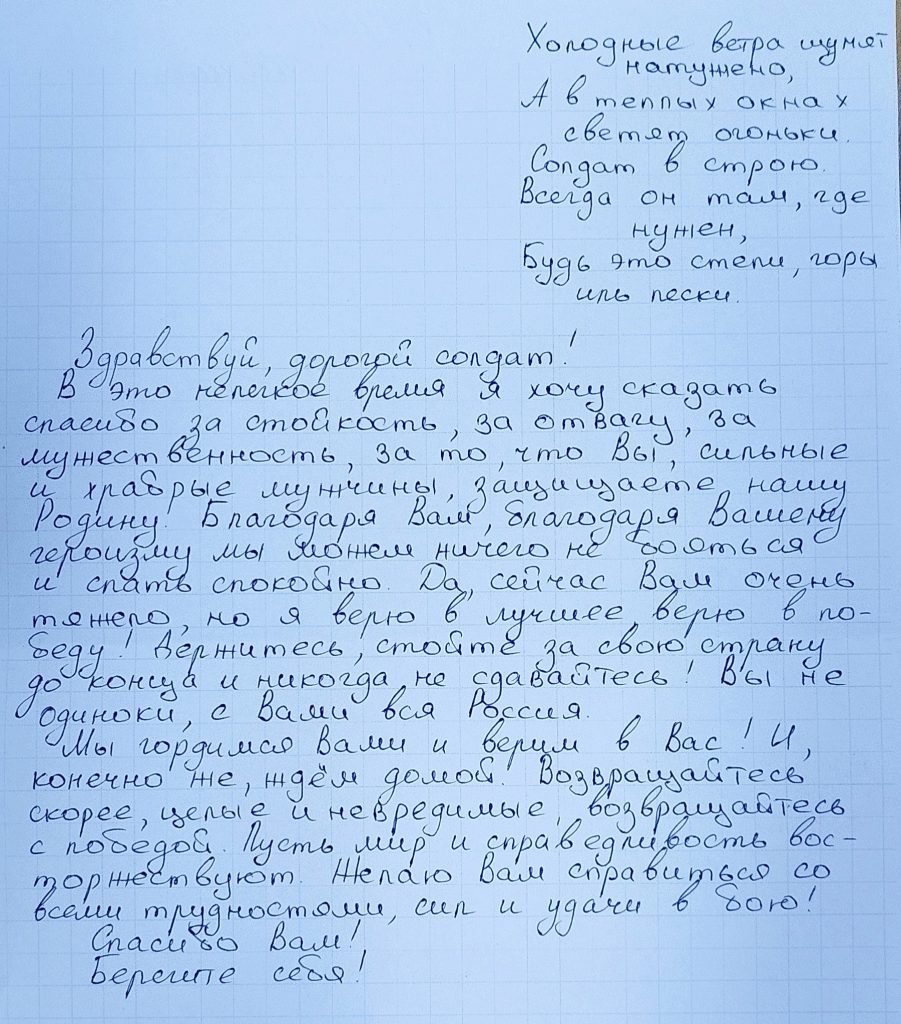 Холодные ветра шумят
натужено,
А в теплых окнах
светят огоньки.
Солдат в строю.
Всегда он там, где
нужен,
Будь это степи, горы
иль пески.
Здравствуй, дорогой солдат!
В это нелегкое время я хочу сказать
спасибо за стойкость, за отвагу, за
мужественность, за то, что Вы, сильные
и храбрые мужчины, защищаете нашу
Родину! Благодаря Вам, благодаря Вашему
героизму мы можем ничего не бояться
и спать спокойно. Да, сейчас Вам очень
тяжело, но я верю в лучшее, верю в по-
беду! Держитесь, стойте за свою страну
до конца и никогда не сдавайтесь! Вы не
одиноки, с Вами вся Россия.
Мы гордимся Вами и верим в Вас! И,
конечно же, ждём домой! Возвращайтесь
скорее, целые и невредимые, возвращайтесь
с победой. Пусть мир и справедливость вос-
торжествуют. Желаю Вам справиться со
всеми трудностями, сил и удачи в бою!
Спасибо Вам!
Берегите себя!